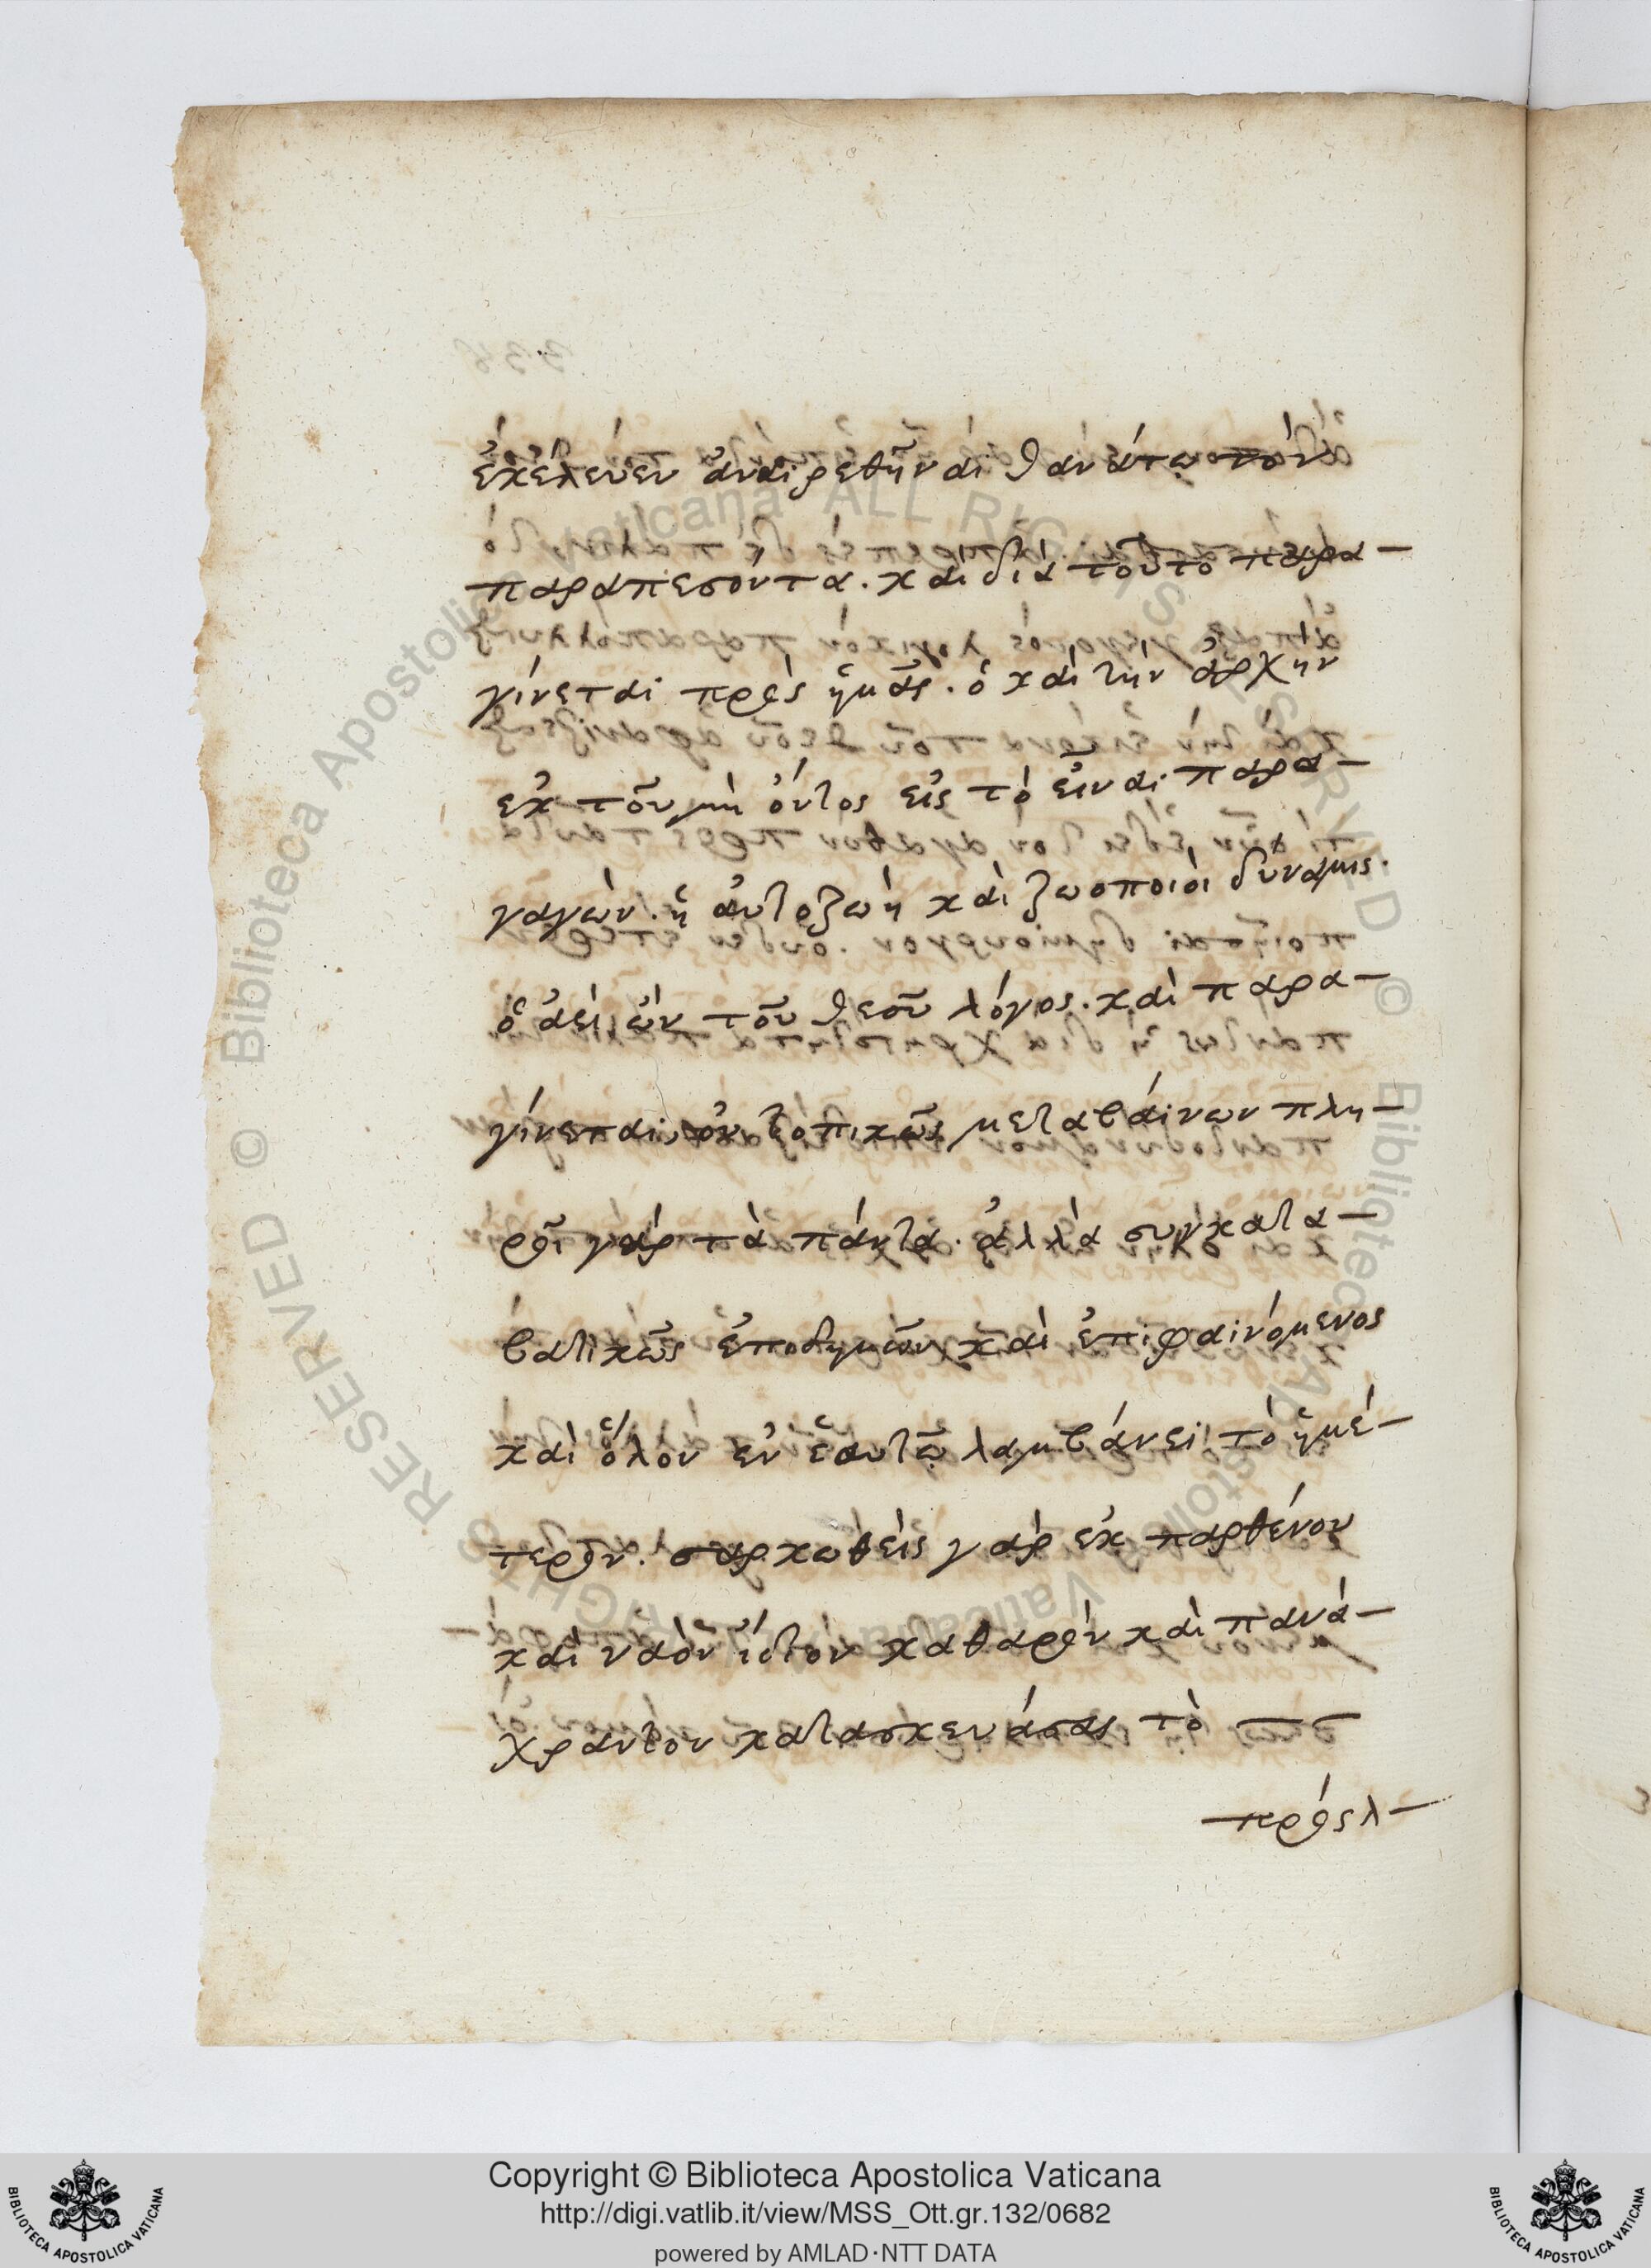 ἐκέλευεν ἀναιρεθῆναι θανάτω τὸν
παραπεσόντα. καὶ διὰ τοῦτο παρα-
γίνεται πρὸς ἡμᾶς. ὁ καὶ τὴν ἀρχὴν
ἐκ τοῦ μὴ ὄντος εἰς τὸ εἶναι παρα-
γαγὼν. ἡ αὐτοζωὴ καὶ ζωοποιὸς δύναμις.
ὁ ἀεὶ ὢν τοῦ θεοῦ λόγος. καὶ παρα-
γίνεται οὐ τοπικῶς μεταβαίνων πλη-
ροῖ γὰρ τὰ πάντα. ἀλλὰ συγκατα-
βατικῶς ἐπιδημῶν καὶ ἐπιφαινόμενος
καὶ ὅλον ἐν ἑαυτῷ λαμβάνει τὸ ἡμέ-
τερον. σαρκωθεὶς γὰρ ἐκ παρθένου
καὶ ναὸν ἴδιον καθαρὸν καὶ πανά-
χραντον κατασκευάσας τὸ
πρόσλ-
Copyright © Biblioteca Apostolica Vaticana
http://digi.vatlib.it/view/MSS_Ott.gr.132/0682
powered by AMLAD·NTT DATA
BIBLIOTECA APOSTOLICA VATICANA
BIBLIOTECA APOSTOLICA VATICANA
© Biblioteca Apostolica Vaticana ALL RIGHTS RESERVED © Biblioteca Apostolica Vaticana ALL RIGHTS RESERVED